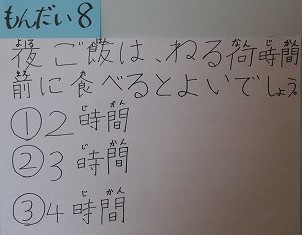 もんだい8
夜ご飯は、ねる何時間
前に食べるとよいでしょう。
①2時間
②3時間
③4時間